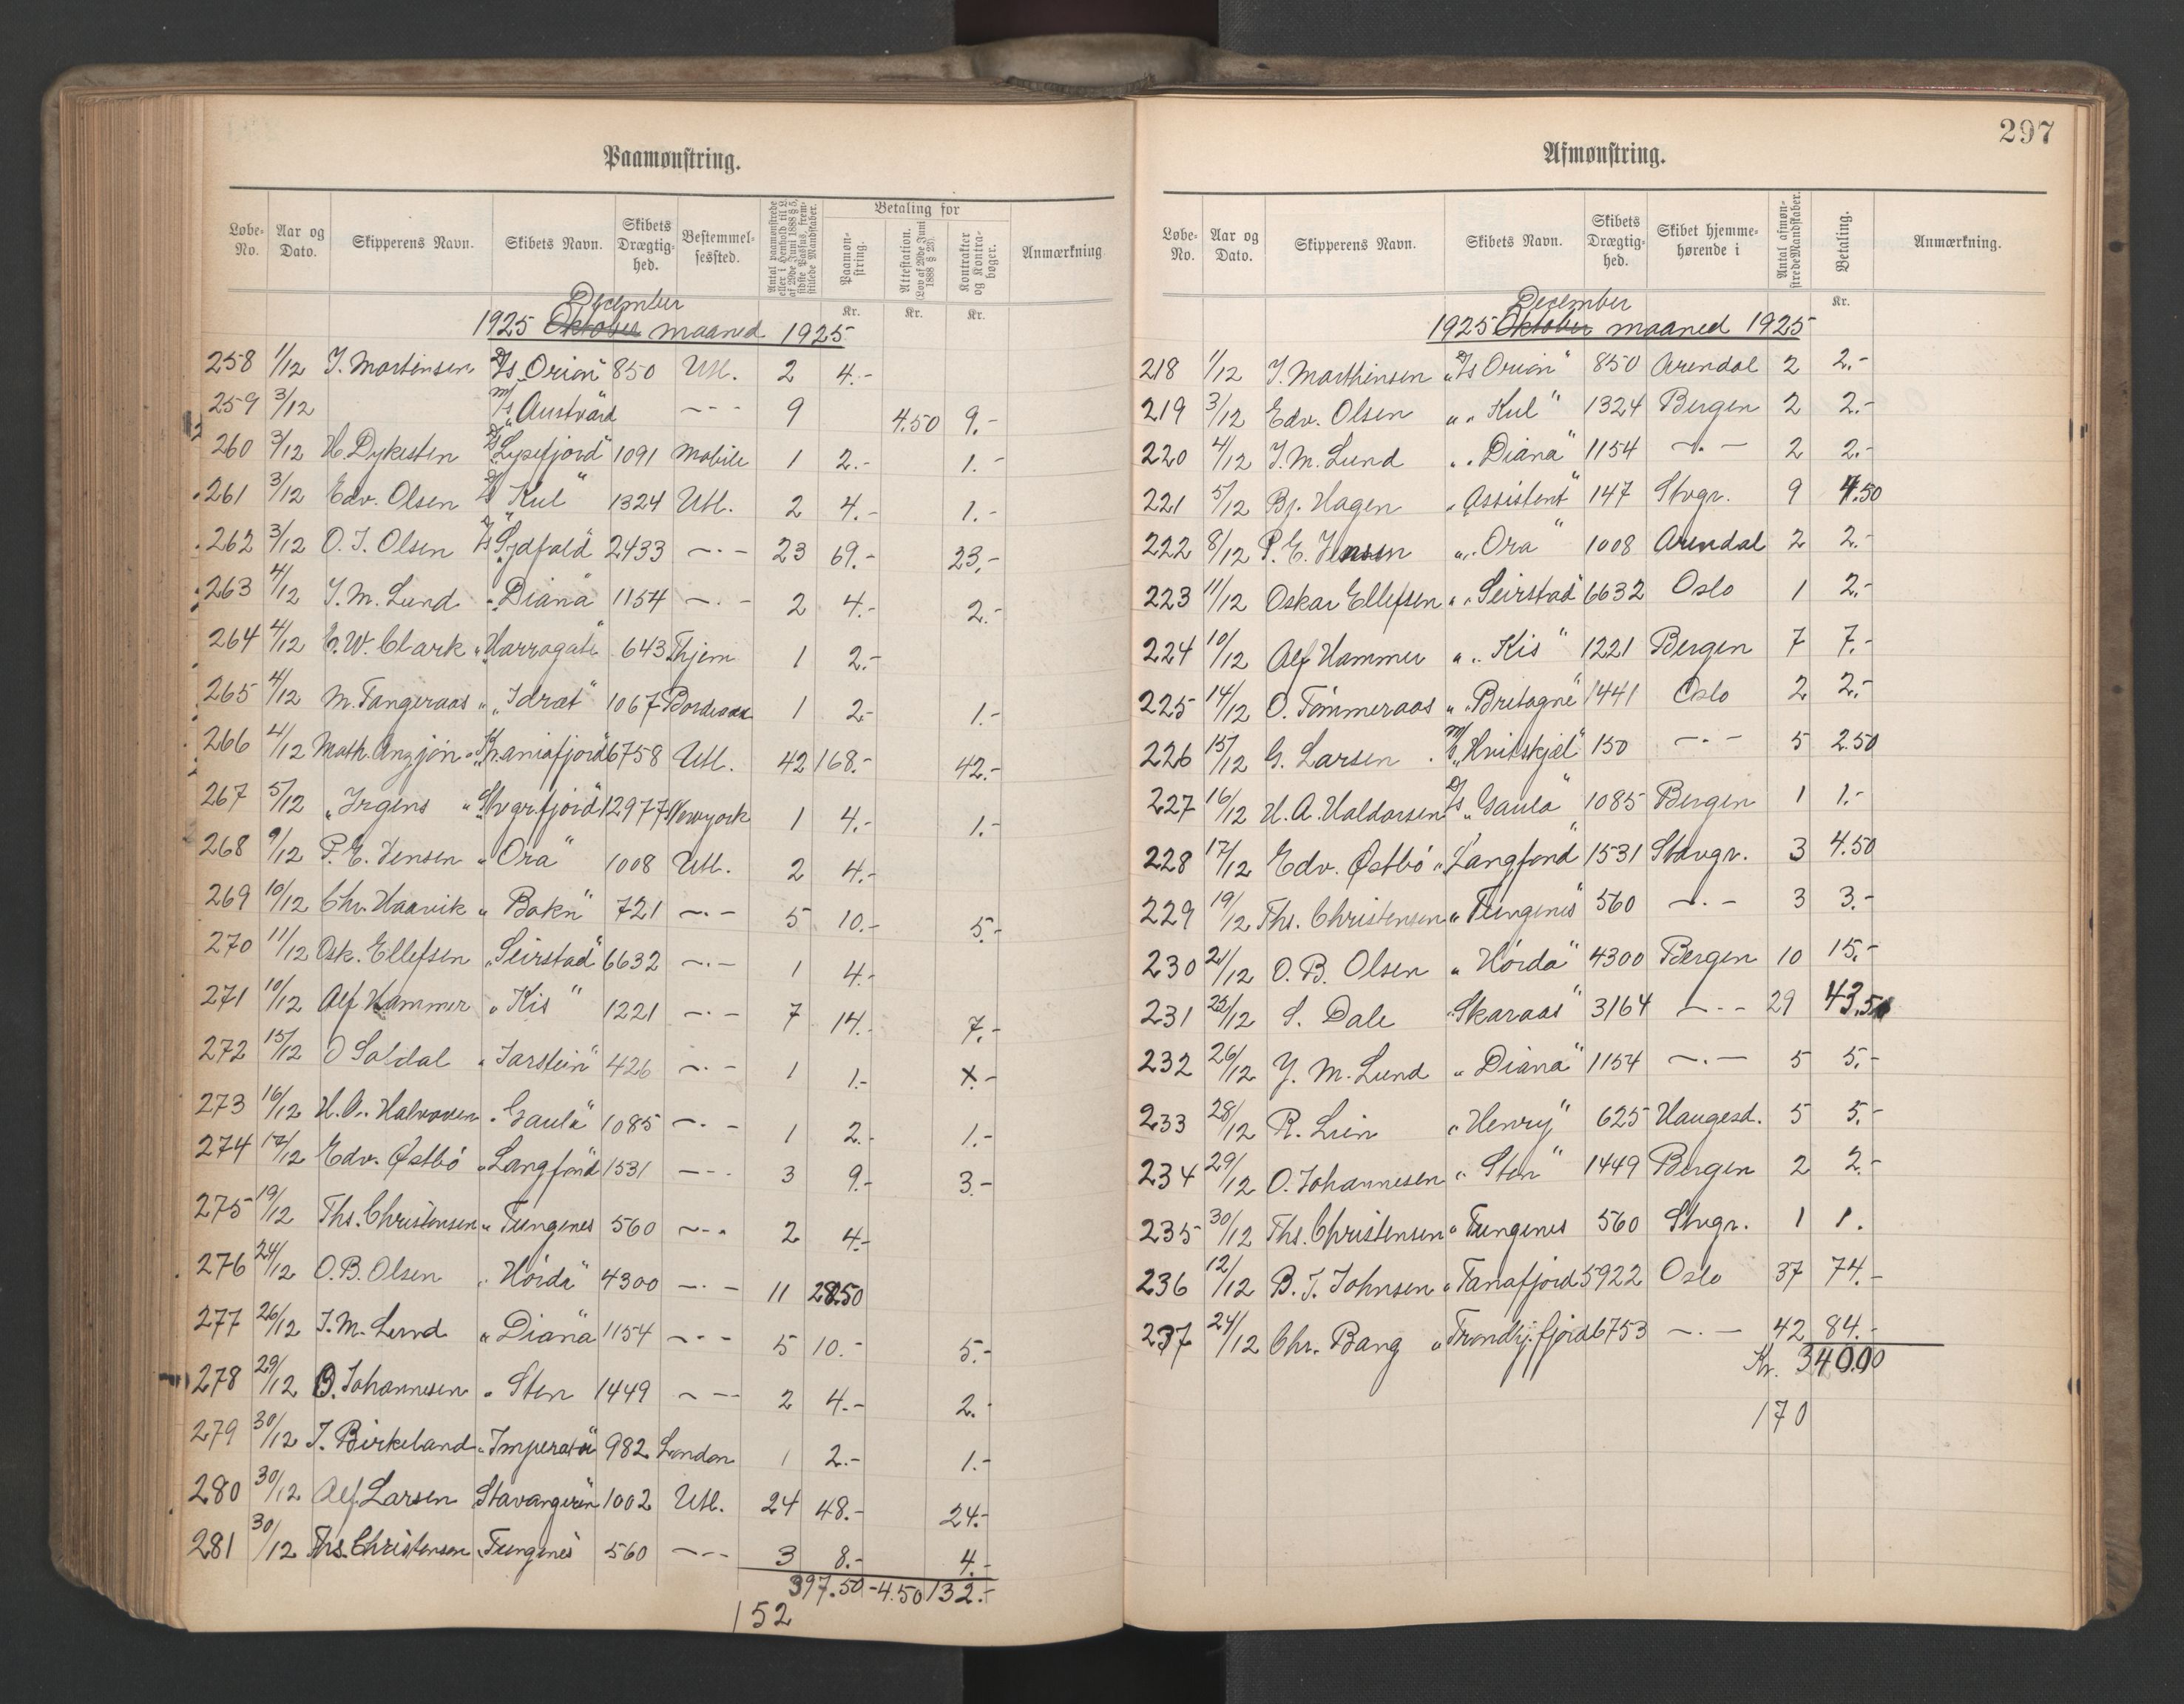 Paamønstring.
Løbe-No. Aar og Dato. Skipperens Navn. Skibets Navn. Skibets Drægtighed. Bestemmelsessted. Antal paamønstrede eller i Henhold til L. af 29de Juni 1888 § 5, sidste Passus, fremstillede Mandskaber. Betaling for Paamønstring. Attestation. (Lov af 29de Juni 1888 § 28). Kontrakter og Kontrabøger. Anmærkning
Kr. Kr. Kr.
December
1925 Oktober maaned 1925
258 1/12 J. Martinsen D/s "Orion" 850 Utl. 2 4.-
259 3/12 m/s "Austvard - - - 9 4.50 9.-
260 3/12 H. Dykesten D/s "Lysefjord" 1091 Mobile 1 2.- 1.-
261 3/12 Edv. Olsen D/s "Kul" 1324 Utl. 2 4.- 1.-
262 3/12 O. J. Olsen D/s "Sydfold" 2433 -.- 23 69.- 23.-
263 4/12 J. M. Lund " "Diana" 1154 -.- 2 4.- 2.-
264 4/12 E. W. Clark " "Harrogate" 643 Thjem 1 2.-
265 4/12 M. Tangeraas " "Idræt" 1067 Bordeaux 1 2.- 1.-
266 4/12 Math. " "Kr.aniafjord" 6758 Utl. 42 168.- 42.-
267 5/12 " Irgens " "Stvgrfjord" 12977 Newyork 1 4.- 1.-
268 9/12 P. E. Jensen " "Ora" 1008 Utl. 2 4.-
269 10/12 Chr. Haavik " "Bokn" 721 -.- 5 10.- 5.-
270 11/12 Osk. Ellefsen " "Seirstad" 6632 -.- 1 4.-
271 10/12 Alf Hammer " "Kis" 1221 -.- 7 14.- 7.-
272 15/12 O Soldal " "Jarstein" 426 -.- 1 1.-
273 16/12 H. A. " "Gaula" 1085 -.- 1 2.- 1.-
274 17/12 Edv. Østbö " "Langfond" 1531 - - - 3 9.- 3.-
275 19/12 Ths. Christensen " Tungenes 560 - - - 2 4.-
276 24/12 O. B. Olsen " "Hörda" 4300 -.- 11 28.50
277 26/12 J. M. Lund " "Diana" 1154 - - - 5 10.- 5.-
278 29/12 O. Johannesen " Sten 1449 - - - 2 4.- 2.-
279 30/12 J. Birkeland " "Imperator" 982 London 1 2.- 1.-
280 30/12 Alf. Larsen Stavangeren 1002 Utl. 24 48.- 24.-
281 30/12 Ths. Christensen "Tungenes" 560 - - - 3 8.- 4.-
397.50 - 4.50 132.-
152
297
Afmønstring.
Løbe-No. Aar og Dato. Skipperens Navn. Skibets Navn. Skibets Drægtighed. Skibet hjemmehørende i Antal afmønstrede Mandskaber. Betaling. Anmærkning.
Kr.
December
1925 Oktober maaned 1925
218 1/12 J. Marthinsen D/s "Orion" 850 Arendal 2 2.-
219 3/12 Edv. Olsen " "Kul" 1324 Bergen 2 2.-
220 4/12 J. M. Lund " "Diana" 1154 -.- 2 2.-
221 5/12 Bj. Hagen " Assistent" 147 Stvgr. 9 4.50
222 8/12 P. E. Jensen " "Ora" 1008 Arendal 2 2.-
223 11/12 Oskar Ellefsen " "Seirstad" 6632 Oslo 1 2.-
224 10/12 Alf Hammer " "Kis" 1221 Bergen 7 7.-
225 14/12 O. Tömmeraas " "Bretagne" 1441 Oslo 2 2.-
226 15/12 G. Larsen M/s "Hvitskjæl" 150 -.- 5 2.50
227 16/12 H. A. Haldorsen D/s "Gaula" 1085 Bergen 1 1.-
228 17/12 Edv. Østbö " "Langfond" 1531 Stavgr. 3 4.50
229 19/12 Ths. Christensen " "Tungenes" 560 -.- 3 3.-
230 24/12 O. B. Olsen " "Hörda" 4300 Bergen 10 15.-
231 25/12 S. Dale "Skaraas" 3164 -.- 29 43.50
232 26/12 Y. M. Lund " "Diana" 1154 -.- 5 5.-
233 28/12 R. Lien " "Henry" 625 Haugesd. 5 5.-
234 29/12 O. Johannesen " "Sten" 1449 Bergen 2 2.-
235 30/12 Ths. Christensen " Tungenes 560 Stvgr. 1 1.
236 12/12 B. T. Johnsen " Tanafjord 5922 Oslo 37 74.-
237 24/12 Chr. Bang " Trondhj.fjord 6753 -.- 42 84.-
Kr. 340.00
170